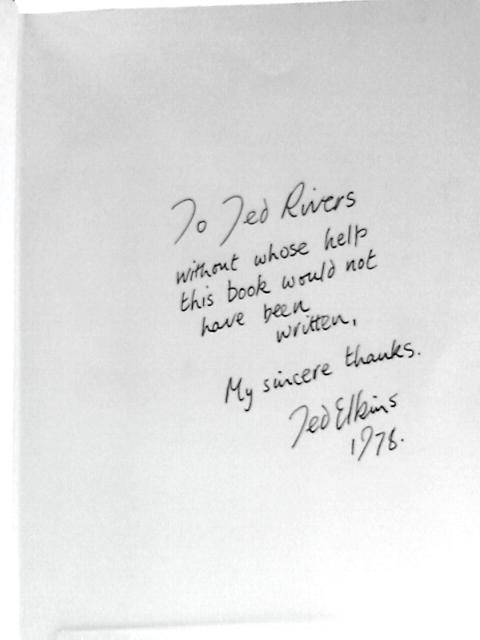 To Ted Rivers
without whose help
this book would not
have been
written,
My sincere thanks.
Ted Elkins
1978.